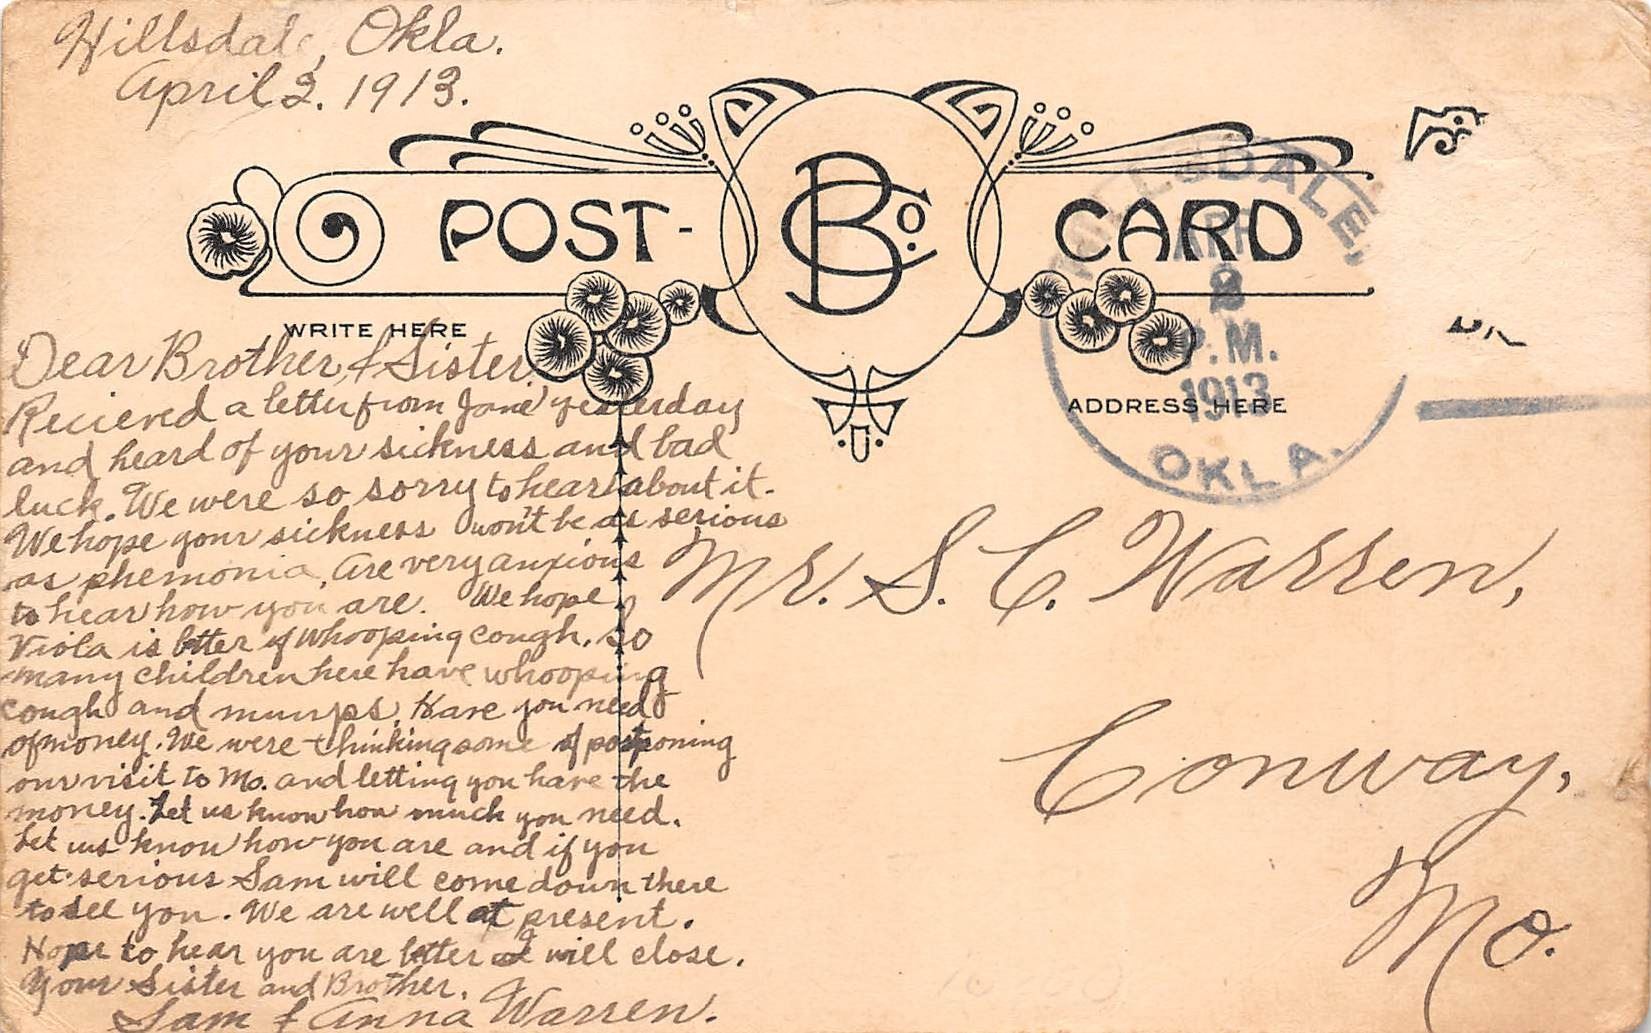 Hillsdale, Okla.
April 2. 1913.
POST-
B Co.
CARD
HILLSDALE,
APR
2
P.M.
1913
OKLA.
WRITE HERE
ADDRESS HERE
Dear Brother & Sister.
Recieved a letter from Jane yesterday
and heard of your sickness and bad
luck. We were so sorry to hear about it.
We hope your sickness won't be as serious
as phemonia. Are very anxious
to hear how you are. We hope
Viola is better of whooping cough. So
many children here have whooping
cough and mumps. Have you need
of money. We were thinking some of postponing
our visit to Mo. and letting you have the
money. Let us know how much you need.
Let us know how you are and if you
get serious Sam will come down there
to see you. We are well at present.
Hope to hear you are better I will close.
Your Sister and Brother.
Sam & Anna Warren.
Mr. S. C. Warren,
Conway,
Mo.